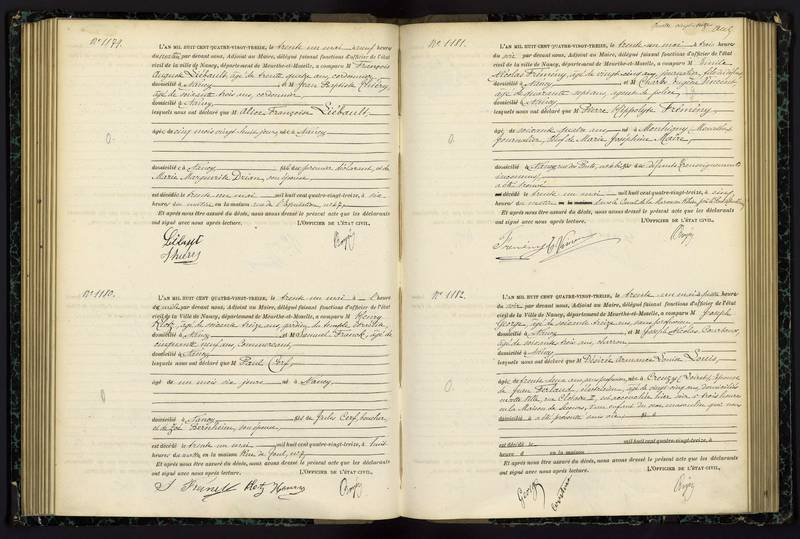 N° 1179.
L'AN MIL HUIT CENT QUATRE-VINGT-TREIZE, le trente un mai neuf heures
du matin par devant nous, Adjoint au Maire, délégué faisant fonctions d'officier de l'état
civil de la ville de Nancy, département de Meurthe-et-Moselle, a comparu M François
Auguste Liébault, âgé de trente quatre ans, cordonnier
domicilié à Nancy et M Jean Baptiste
âgé de soixante trois ans, cordonnier
domicilié à Nancy
lesquels nous ont déclaré que M Alice Françoise Liébault,
âgée de cinq mois vingt huit jours, née à Nancy
domiciliée à Nancy fille du premier déclarant, et de
Marie Marguerite Drian, son épouse
est décédée le trente un mai mil huit cent quatre-vingt-treize, à six
heures du matin en la maison rue de l'Equitation, n° 7,
Et après nous être assuré du décès, nous avons dressé le présent acte que les déclarants
ont signé avec nous après lecture. L'OFFICIER DE L'ÉTAT CIVIL,
N° 1180.
L'AN MIL HUIT CENT QUATRE-VINGT-TREIZE, le trente un mai à heure
du par devant nous, Adjoint au Maire, délégué faisant fonctions d'officier de l'état
civil de la Ville de Nancy, département de Meurthe-et-Moselle, a comparu M Henry
Klotz, âgé de soixante treize ans, gardien du temple israélite
domicilié à Nancy et M Franck, âgé de
cinquante neuf ans, Commerçant,
domicilié à Nancy
lesquels nous ont déclaré que M Paul Cerf,
âgé de un mois six jours né à Nancy
domicilié à Nancy fils de Jules Cerf, boucher
et de Zoé Bernheim, son épouse,
est décédé le trente un mai mil huit cent quatre-vingt-treize, à huit
heures du matin en la maison Rue de n° 7
Et après nous être assuré du décès, nous avons dressé le présent acte que les déclarants
ont signé avec nous après lecture. L'OFFICIER DE L'ÉTAT CIVIL,
N° 1181.
L'AN MIL HUIT CENT QUATRE-VINGT-TREIZE, le trente un mai à trois heures
du soir par devant nous, Adjoint au Maire, délégué faisant fonctions d'officier de l'état
civil de la ville de Nancy, département de Meurthe-et-Moselle, a comparu M
Nicolas Frémény, âgé de vingt cinq ans, journalier, fils du défunt
domicilié à Nancy et M Charles Eugène
âgé de quarante sept ans, agent de police
domicilié à Nancy
lesquels nous ont déclaré que M Pierre Hippolyte Frémény,
âgé de soixante quatre ans né à Montigny
journalier, veuf de Marie Joséphine Maire,
domicilié à Nancy
inconnus
a été trouvé
le trente un mai mil huit cent quatre-vingt-treize, à cinq
heures du matin dans le Canal de la Marne au Rhin
Et après nous être assuré du décès, nous avons dressé le présent acte que les déclarants
ont signé avec nous après lecture. L'OFFICIER DE L'ÉTAT CIVIL,
N° 1182.
L'AN MIL HUIT CENT QUATRE-VINGT-TREIZE, le trente un mai à heures
du soir par devant nous, Adjoint au Maire, délégué faisant fonctions d'officier de l'état
civil de la Ville de Nancy, département de Meurthe-et-Moselle, a comparu M Joseph
George, âgé de soixante treize ans, sans profession
domicilié à Nancy et M Joseph Nicolas
âgé de soixante trois ans, charron
domicilié à Nancy
lesquels nous ont déclaré que M Désirée Armance Louise Louis,
âgée de trente deux ans, sans profession, née à (Loiret), épouse
de Jean domiciliés
en cette ville, est accouchée hier soir, à trois heures
en la Maison de Secours, d'un enfant du sexe masculin que nous
a été présenté sans vie
est décédé le mil huit cent quatre-vingt-treize, à
heure d en la maison
Et après nous être assuré du décès, nous avons dressé le présent acte que les déclarants
ont signé avec nous après lecture. L'OFFICIER DE L'ÉTAT CIVIL,